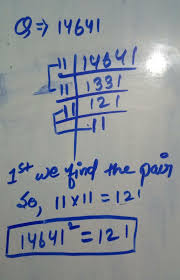 Q ⇒ 14641
11 | 14641
11 | 1331
11 | 121
11
1st we find the pair
So, 11 x 11 = 121
14641² = 121